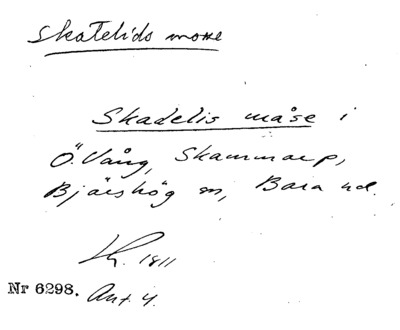 Skatelids mosse
Skadelis måse i
Ö. Vång, Skammarp,
Bjärshög sn, Bara hd.
1811
Nr 6298. Ant. 4.